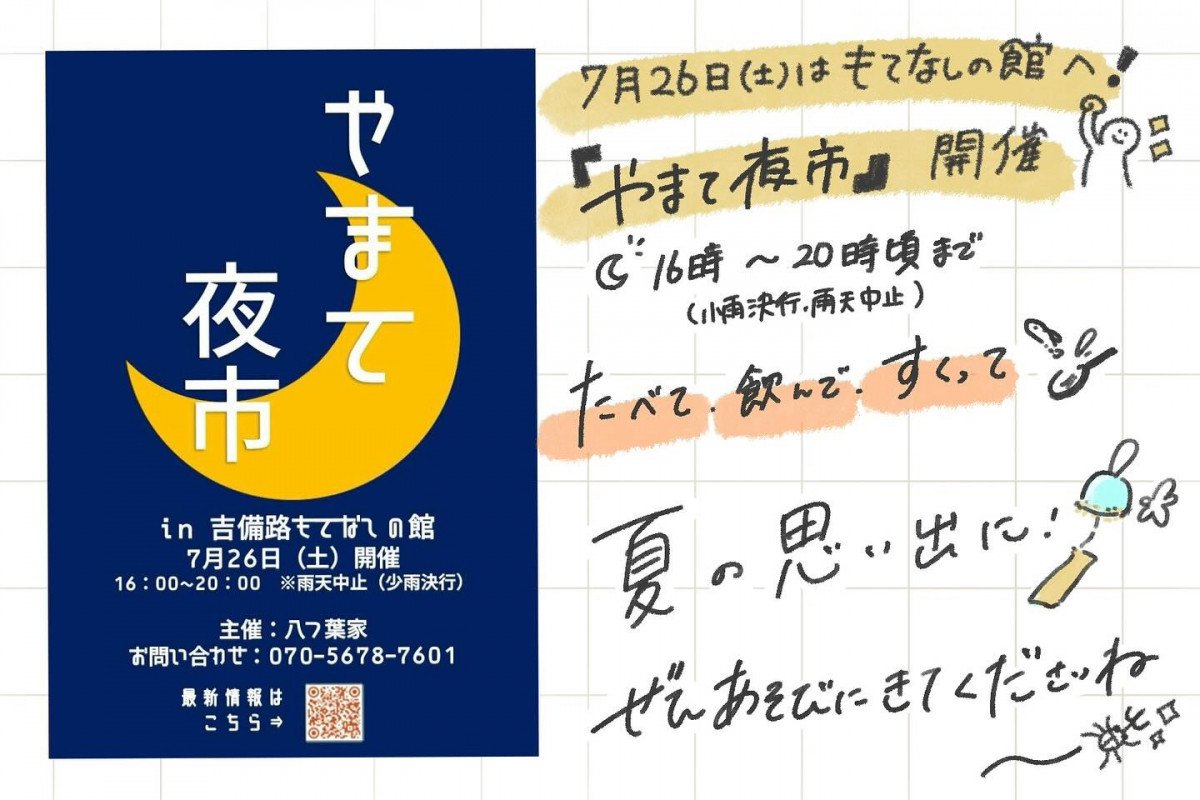 やまて
夜市
in 吉備路もてなしの館
7月26日（土）開催
16：00~20：00　※雨天中止（少雨決行）
主催：八つ葉家
お問い合わせ：070-5678-7601
最新情報は
こちら⇒
7月26日(土)はもてなしの館へ!
『やまて夜市』開催
16時 〜 20時頃まで
（小雨決行.雨天中止）
たべて.飲んで.すくって
夏の思い出に!
ぜひあそびにきてくださいね
〜